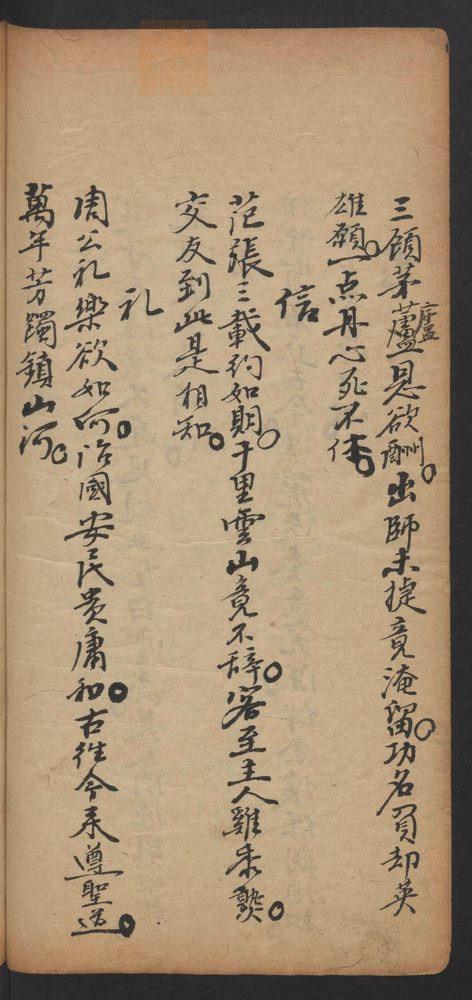 三顧茅蘆恩欲酬。出師未捷竟淹留。功名負却英
廬
雄願。一点丹心死不休。
信
范張三載約如期。千里雲山竟不辞。客至主人雞黍熟。
交友到此是相知。
礼
周公礼樂欲如何。治國安民贵庸和。古往今来遵聖道。
萬年芳躅鎮山河。